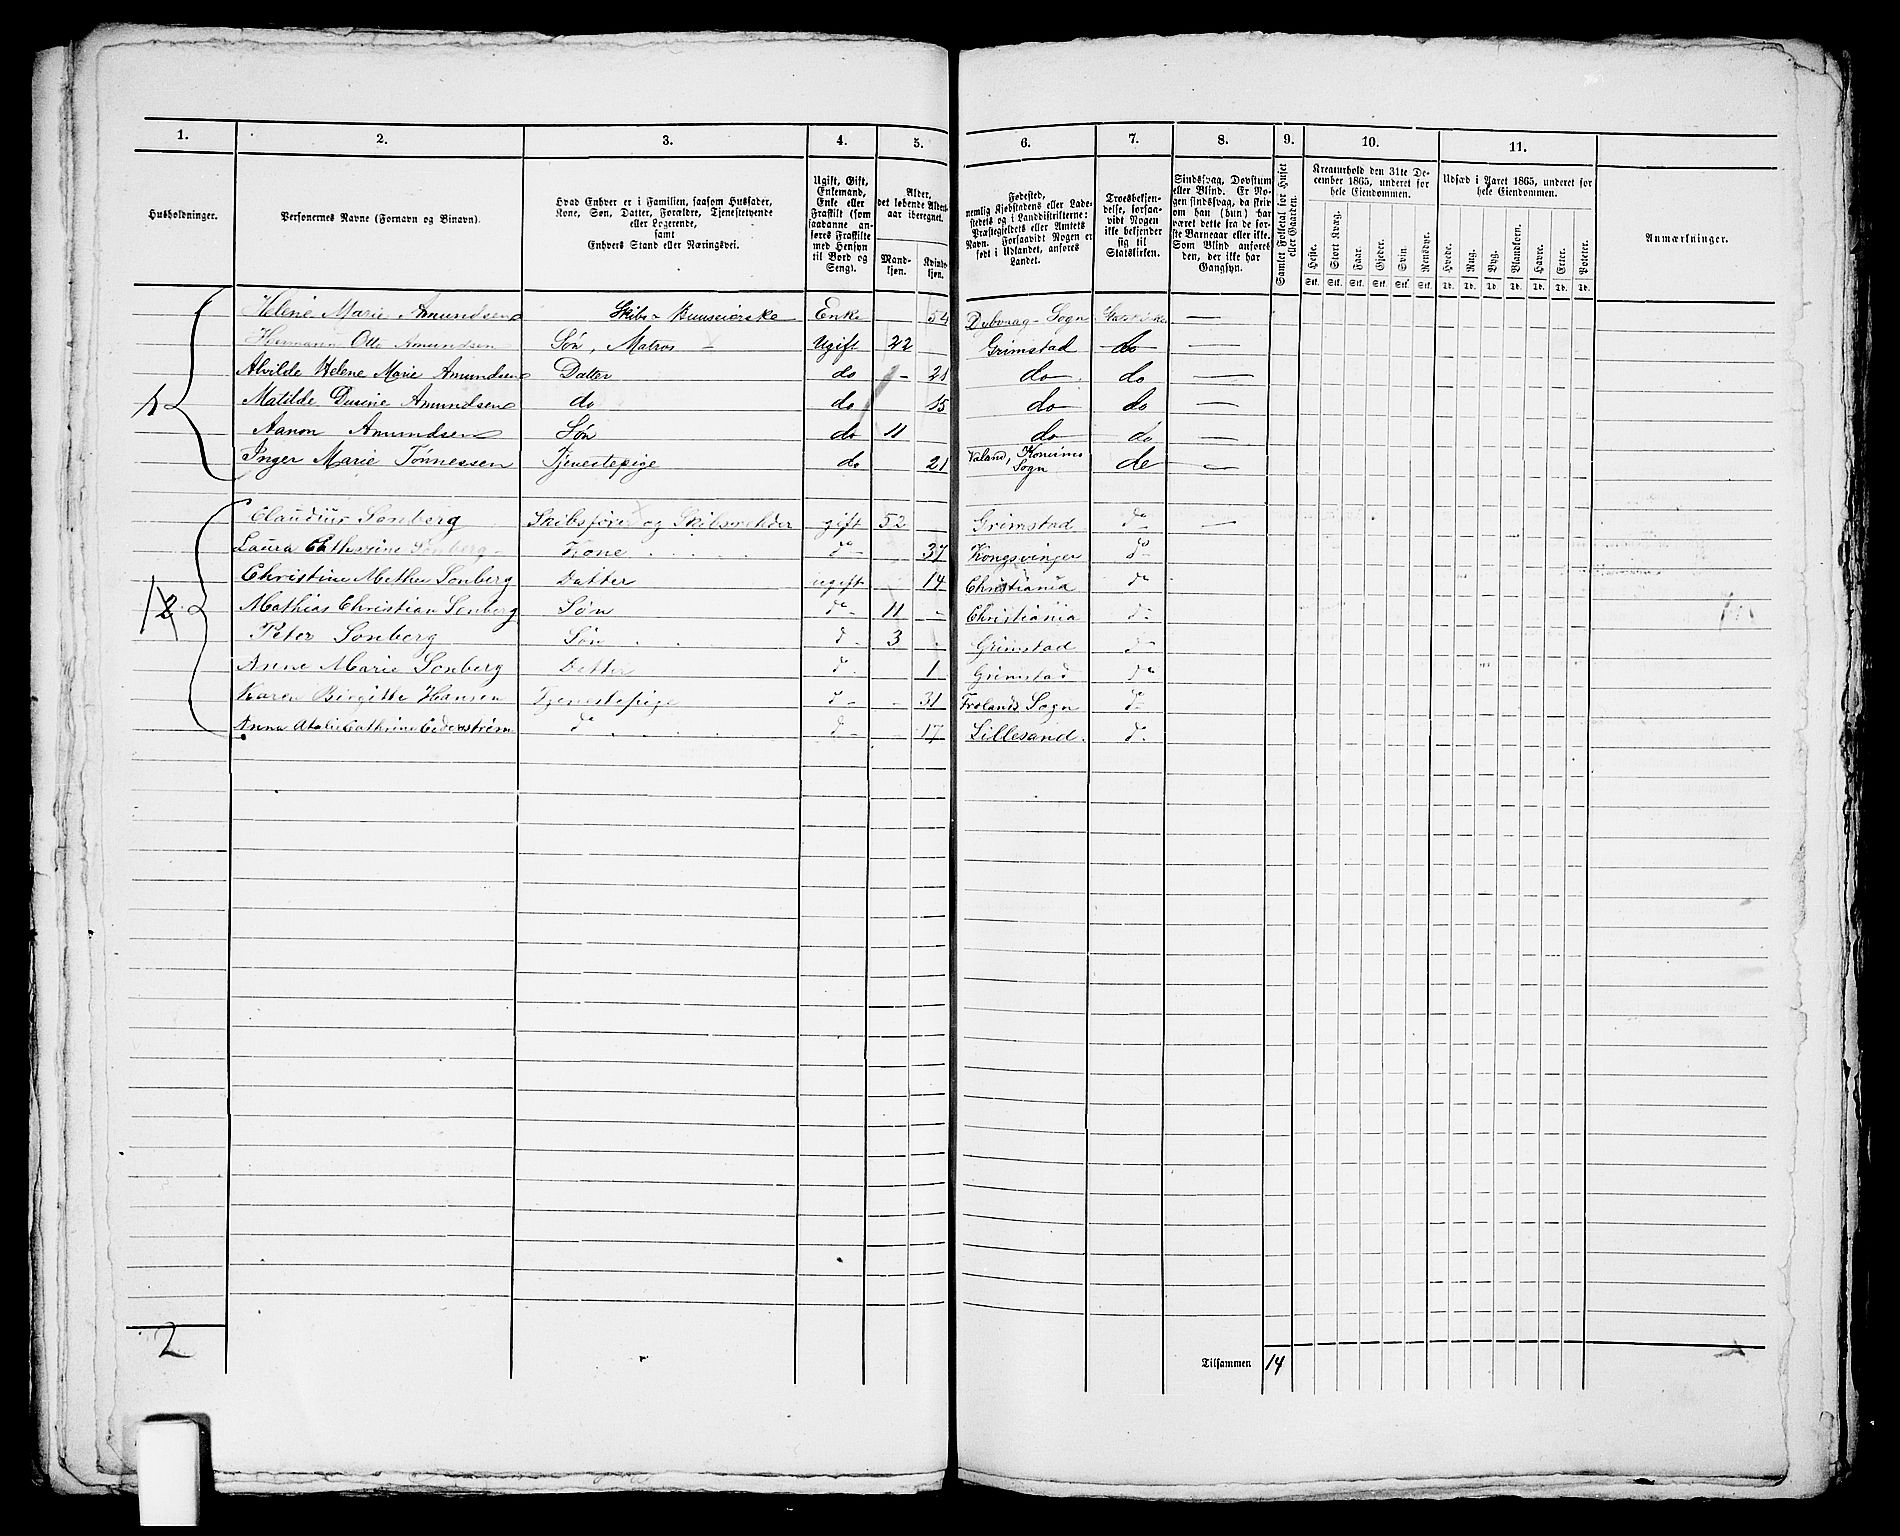 1. 2. 3. 4. 5. 6. 7. 8. 9. 10. 11.
Husholdninger.
Personernes Navne (Fornavn og Binavn).
Hvad Enhver er i Familien, saasom Husfader, Kone, Søn, Datter, Forældre, Tjenestetyende eller Logerende, samt Enhvers Stand eller Næringsvei.
Ugift, Gift, Enkemand, Enke eller Fraskilt (som saadanne anføres Fraskilte med Hensyn til Bord og Seng).
Alder, det løbende Aldersaar iberegnet.
Mandkjøn. Kvindekjøn.
Fødested, nemlig Kjøbstadens eller Ladestedets og i Landdistrikterne: Præstegjeldets eller Amtets Navn. Forsaavidt Nogen er født i Udlandet, anføres Landet.
Troesbekjendelse, forsaavidt Nogen ikke bekjender sig til Statskirken.
Sindssvag, Døvstum eller Blind. Er Nogen sindssvag, da skrives om han (hun) har været dette fra de første Barneaar eller ikke. Som Blind anføres den, der ikke har Gangsyn.
Samlet Folketal for Huset eller Gaarden.
Kreaturhold den 31te December 1865, underet for hele Eiendommen.
Heste. Stort Kvæg. Faar. Gjeder. Svin. Rensdyr.
Stk. Stk. Stk. Stk. Stk. Stk.
Udsæd i Aaret 1865, underet for hele Eiendommen.
Hvede. Rug. Byg. Blandkorn. Havre. Erter. Poteter.
Td. Td. Td. Td. Td. Td. Td.
Anmærkninger.
Helene Marie Amundsen Skibs- Enke 54 Sogn
Hermann Otto Amundsen Søn, Matros — Ugift 22 Grimstad do —
Alvilde Helene Marie Amundsen Datter do - 21 do do —
Matilde Amundsen do do 15 do do —
Aanon Amundsen Søn do 11 do do —
Inger Marie Tønnessen Tjenestepige do 21 Sogn do —
Claudius Sonberg Skibsfører og Skibsrehder gift 52 Grimstad do —
Laura Cathrine Sonberg Kone do 37 Kongsvinger do
Christine Methea Sonberg Datter ugift 14 Christiania do
2. Mathias Christian Sonberg Søn do 11 - Christiania do
Peter Sonberg Søn do 3 - Grimstad do
Anne Marie Sonberg Datter do 1 Grimstad do
Karen Birgitte Hansen Tjenestepige do - 31 Frolands Sogn do
Anna Atalie Cathrine Cederstrøm do do - 17 Lillesand. do
2
Tilsammen 14